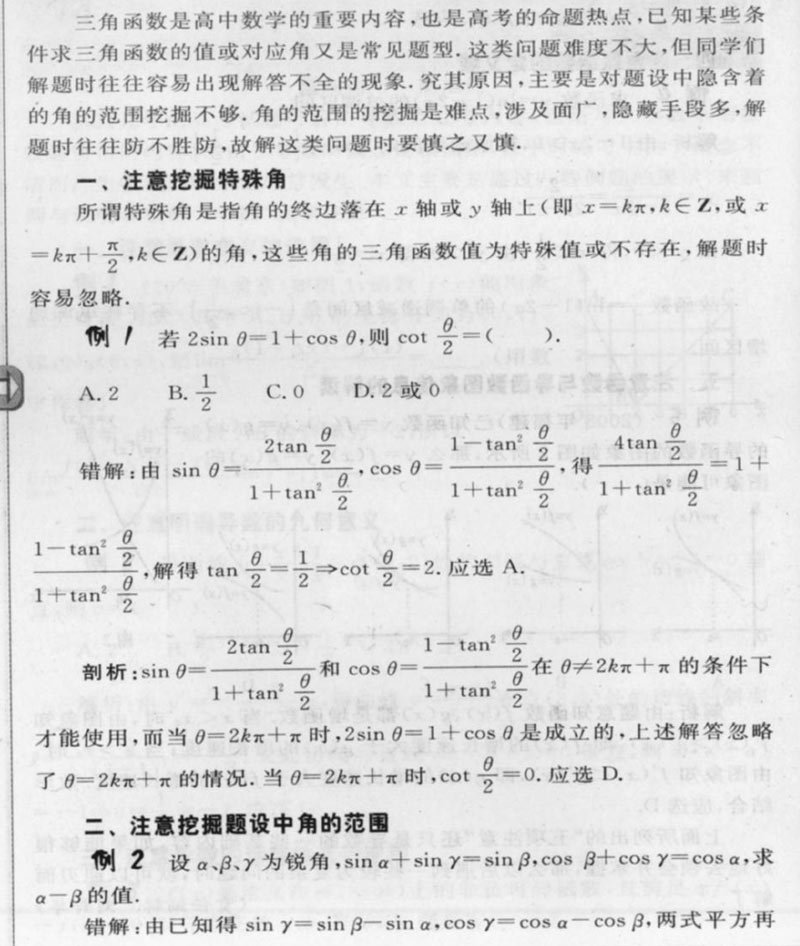 三角函数是高中数学的重要内容,也是高考的命题热点,已知某些条
件求三角函数的值或对应角又是常见题型.这类问题难度不大,但同学们
解题时往往容易出现解答不全的现象.究其原因,主要是对题设中隐含着
的角的范围挖掘不够.角的范围的挖掘是难点,涉及面广,隐藏手段多,解
题时往往防不胜防,故解这类问题时要慎之又慎.
一、注意挖掘特殊角
所谓特殊角是指角的终边落在 x 轴或 y 轴上(即 x=kπ,k∈Z,或 x
=kπ+π/2,k∈Z)的角,这些角的三角函数值为特殊值或不存在,解题时
容易忽略.
例 1 若 2sin θ=1+cos θ,则 cot θ/2=( ).
A. 2 B. 1/2 C. 0 D. 2 或 0
错解:由 sin θ=(2tan θ/2)/(1+tan² θ/2),cos θ=(1-tan² θ/2)/(1+tan² θ/2),得 (4tan θ/2)/(1+tan² θ/2)=1+
(1-tan² θ/2)/(1+tan² θ/2),解得 tan θ/2=1/2⇒cot θ/2=2.应选 A.
剖析:sin θ=(2tan θ/2)/(1+tan² θ/2)和 cos θ=(1-tan² θ/2)/(1+tan² θ/2)在 θ≠2kπ+π 的条件下
才能使用,而当 θ=2kπ+π 时,2sin θ=1+cos θ 是成立的,上述解答忽略
了 θ=2kπ+π 的情况.当 θ=2kπ+π 时,cot θ/2=0.应选 D.
二、注意挖掘题设中角的范围
例 2 设 α、β、γ 为锐角,sin α+sin γ=sin β,cos β+cos γ=cos α,求
α-β 的值.
错解:由已知得 sin γ=sin β-sin α,cos γ=cos α-cos β,两式平方再